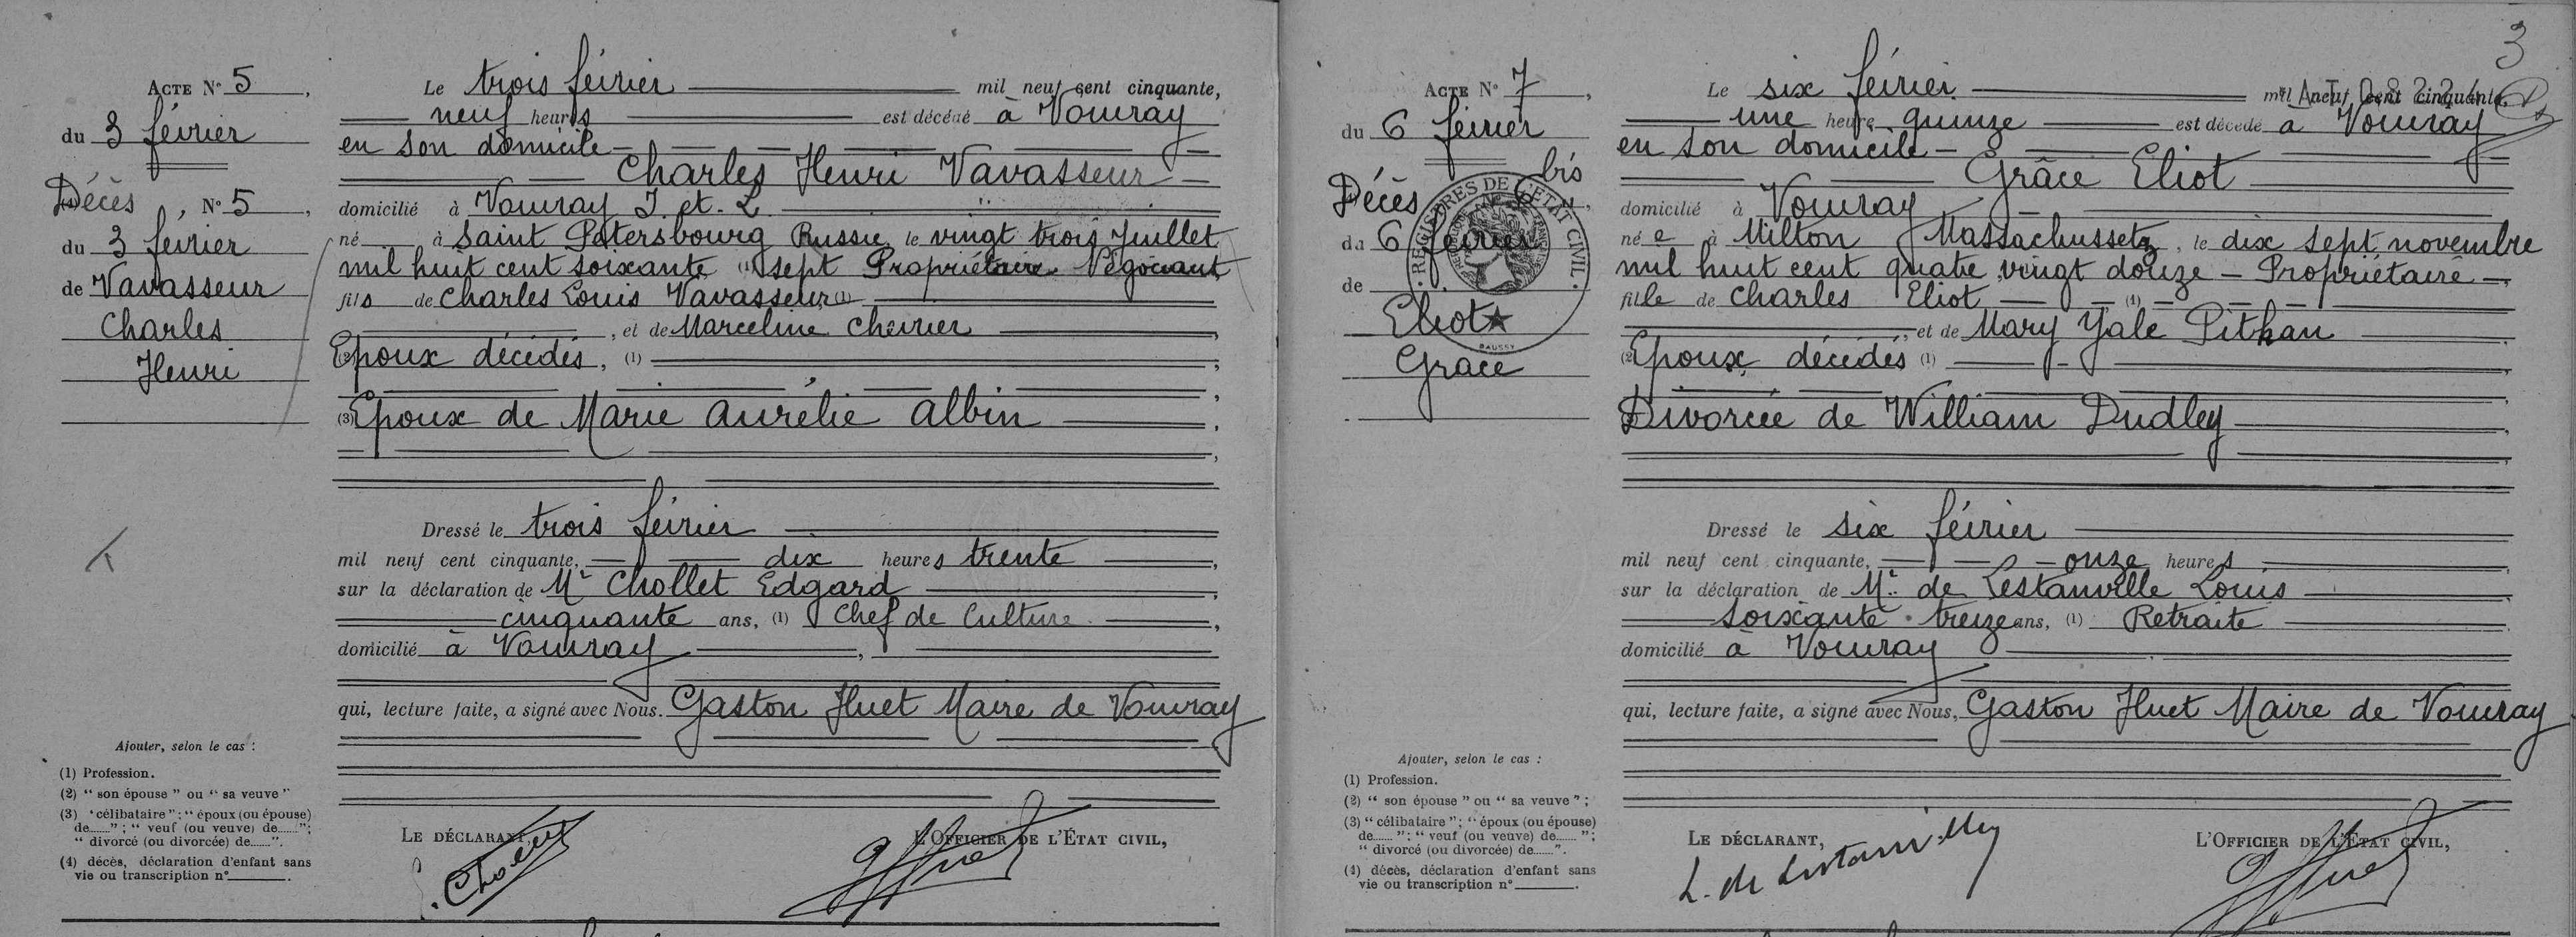 Acte N° 5,
du 3 février
Décès, N° 5,
du 3 février
de Vavasseur
Charles
Henri
Le trois février mil neuf cent cinquante,
neuf heures est décédé à Vouvray
en son domicile
Charles Henri Vavasseur
domicilié à Vouvray I. et. L
né à Saint Pétersbourg Russie, le vingt trois Juillet
mil huit cent soixante (1) sept Propriétaire Négociant
fils de Charles Louis Vavasseur (1)
, et de Marceline Chevrier
Epoux décédés, (1)
(3) Epoux de Marie Aurélie Albin
Dressé le trois février
mil neuf cent cinquante, dix heures trente
sur la déclaration de Mr Chollet Edgard
cinquante ans, (1) Chef de Culture
domicilié à Vouvray
qui, lecture faite, a signé avec Nous. Gaston Huet Maire de Vouvray
Ajouter, selon le cas :
(1) Profession.
(2) “ son épouse ” ou “ sa veuve ”
(3) “ célibataire ” ; “ époux (ou épouse)
de...... ” ; “ veuf (ou veuve) de...... ” ;
“ divorcé (ou divorcée) de...... ”.
(4) décès, déclaration d'enfant sans
vie ou transcription n° .
Le déclarant,
Chollet
L'Officier de l'État civil,
3
Acte N° 7,
du 6 février
Décès 6 bis
du 6 février
de
Eliot
Grace
REGISTRES DE L'ETAT CIVIL
Le six février mil neuf cent cinquante,
une heure quinze est décédé à Vouvray
en son domicile
Grâce Eliot
domicilié à Vouvray
née à Milton Massachussetz, le dix sept novembre
mil huit cent quatre vingt douze - Propriétaire
fille de Charles Eliot (1)
, et de Mary Yale Pitkan
Epoux décédés (1)
Divorcée de William Dudley
Dressé le six février
mil neuf cent cinquante, onze heures
sur la déclaration de Mr. de Lestanville Louis
soixante treize ans, (1) Retraité
domicilié à Vouvray
qui, lecture faite, a signé avec Nous, Gaston Huet Maire de Vouvray
Ajouter, selon le cas :
(1) Profession.
(2) “ son épouse ” ou “ sa veuve ” ;
(3) “ célibataire ” ; “ époux (ou épouse)
de...... ” ; “ veuf (ou veuve) de...... ” ;
“ divorcé (ou divorcée) de...... ”.
(4) décès, déclaration d'enfant sans
vie ou transcription n° .
Le déclarant,
L. de Lestanville
L'Officier de l'État civil,